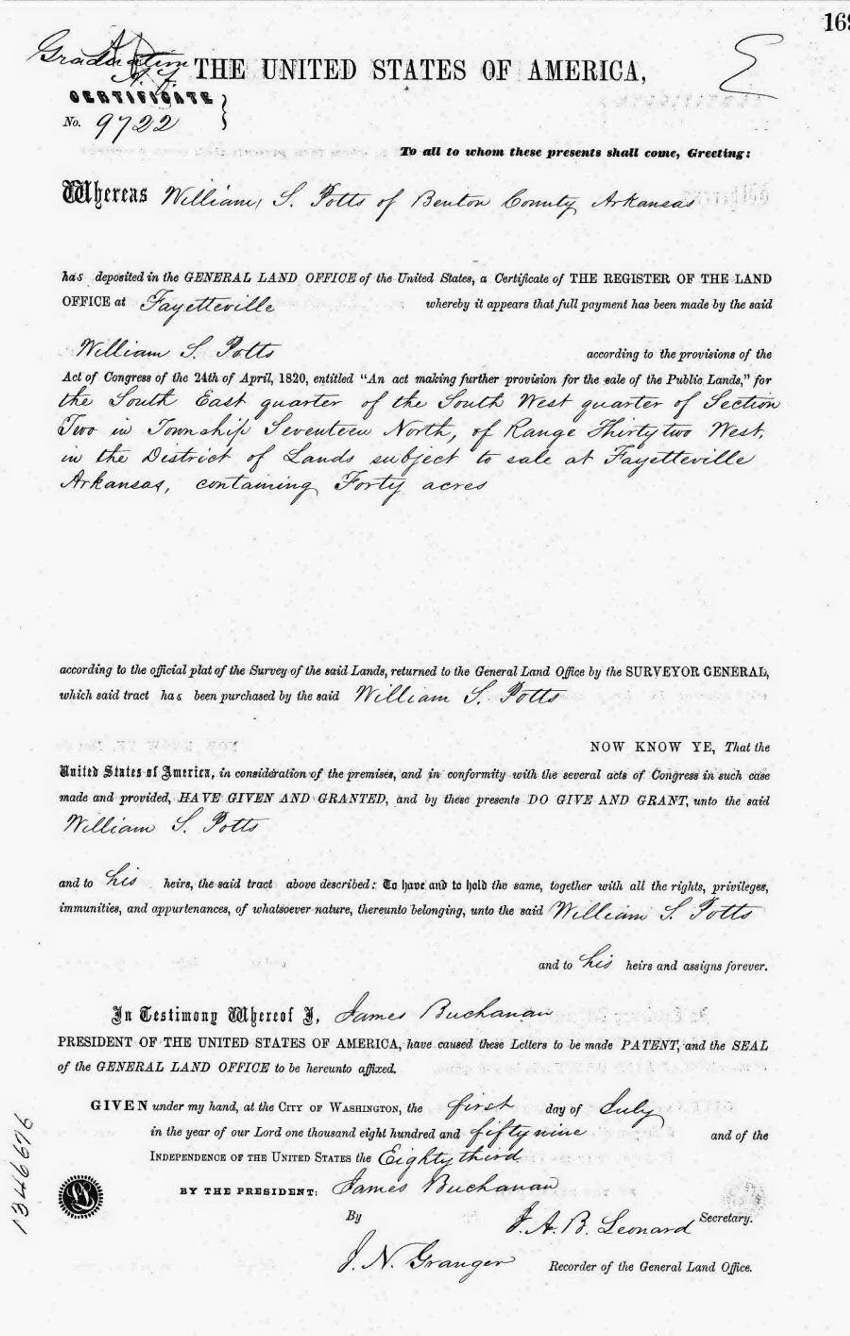 169
Graduation
THE UNITED STATES OF AMERICA,
CERTIFICATE
No. 9722
To all to whom these presents shall come, Greeting:
Whereas William S. Potts of Benton County Arkansas
has deposited in the GENERAL LAND OFFICE of the United States, a Certificate of THE REGISTER OF THE LAND
OFFICE at Fayetteville whereby it appears that full payment has been made by the said
William S. Potts according to the provisions of the
Act of Congress of the 24th of April, 1820, entitled "An act making further provision for the sale of the Public Lands," for
the South East quarter of the South West quarter of Section
Two in Township Seventeen North, of Range Thirty two West,
in the District of Lands subject to sale at Fayetteville
Arkansas, containing Forty acres
according to the official plat of the Survey of the said Lands, returned to the General Land Office by the SURVEYOR GENERAL,
which said tract has been purchased by the said William S. Potts
NOW KNOW YE, That the
United States of America, in consideration of the premises, and in conformity with the several acts of Congress in such case
made and provided, HAVE GIVEN AND GRANTED, and by these presents DO GIVE AND GRANT, unto the said
William S. Potts
and to his heirs, the said tract above described: To have and to hold the same, together with all the rights, privileges,
immunities, and appurtenances, of whatsoever nature, thereunto belonging, unto the said William S. Potts
and to his heirs and assigns forever.
In Testimony Whereof I, James Buchanan
PRESIDENT OF THE UNITED STATES OF AMERICA, have caused these Letters to be made PATENT, and the SEAL
of the GENERAL LAND OFFICE to be hereunto affixed.
GIVEN under my hand, at the CITY OF WASHINGTON, the first day of July
in the year of our Lord one thousand eight hundred and fifty nine and of the
INDEPENDENCE OF THE UNITED STATES the Eighty third
BY THE PRESIDENT: James Buchanan
By J. A. B. Leonard Secretary.
J. N. Granger Recorder of the General Land Office.
1346676